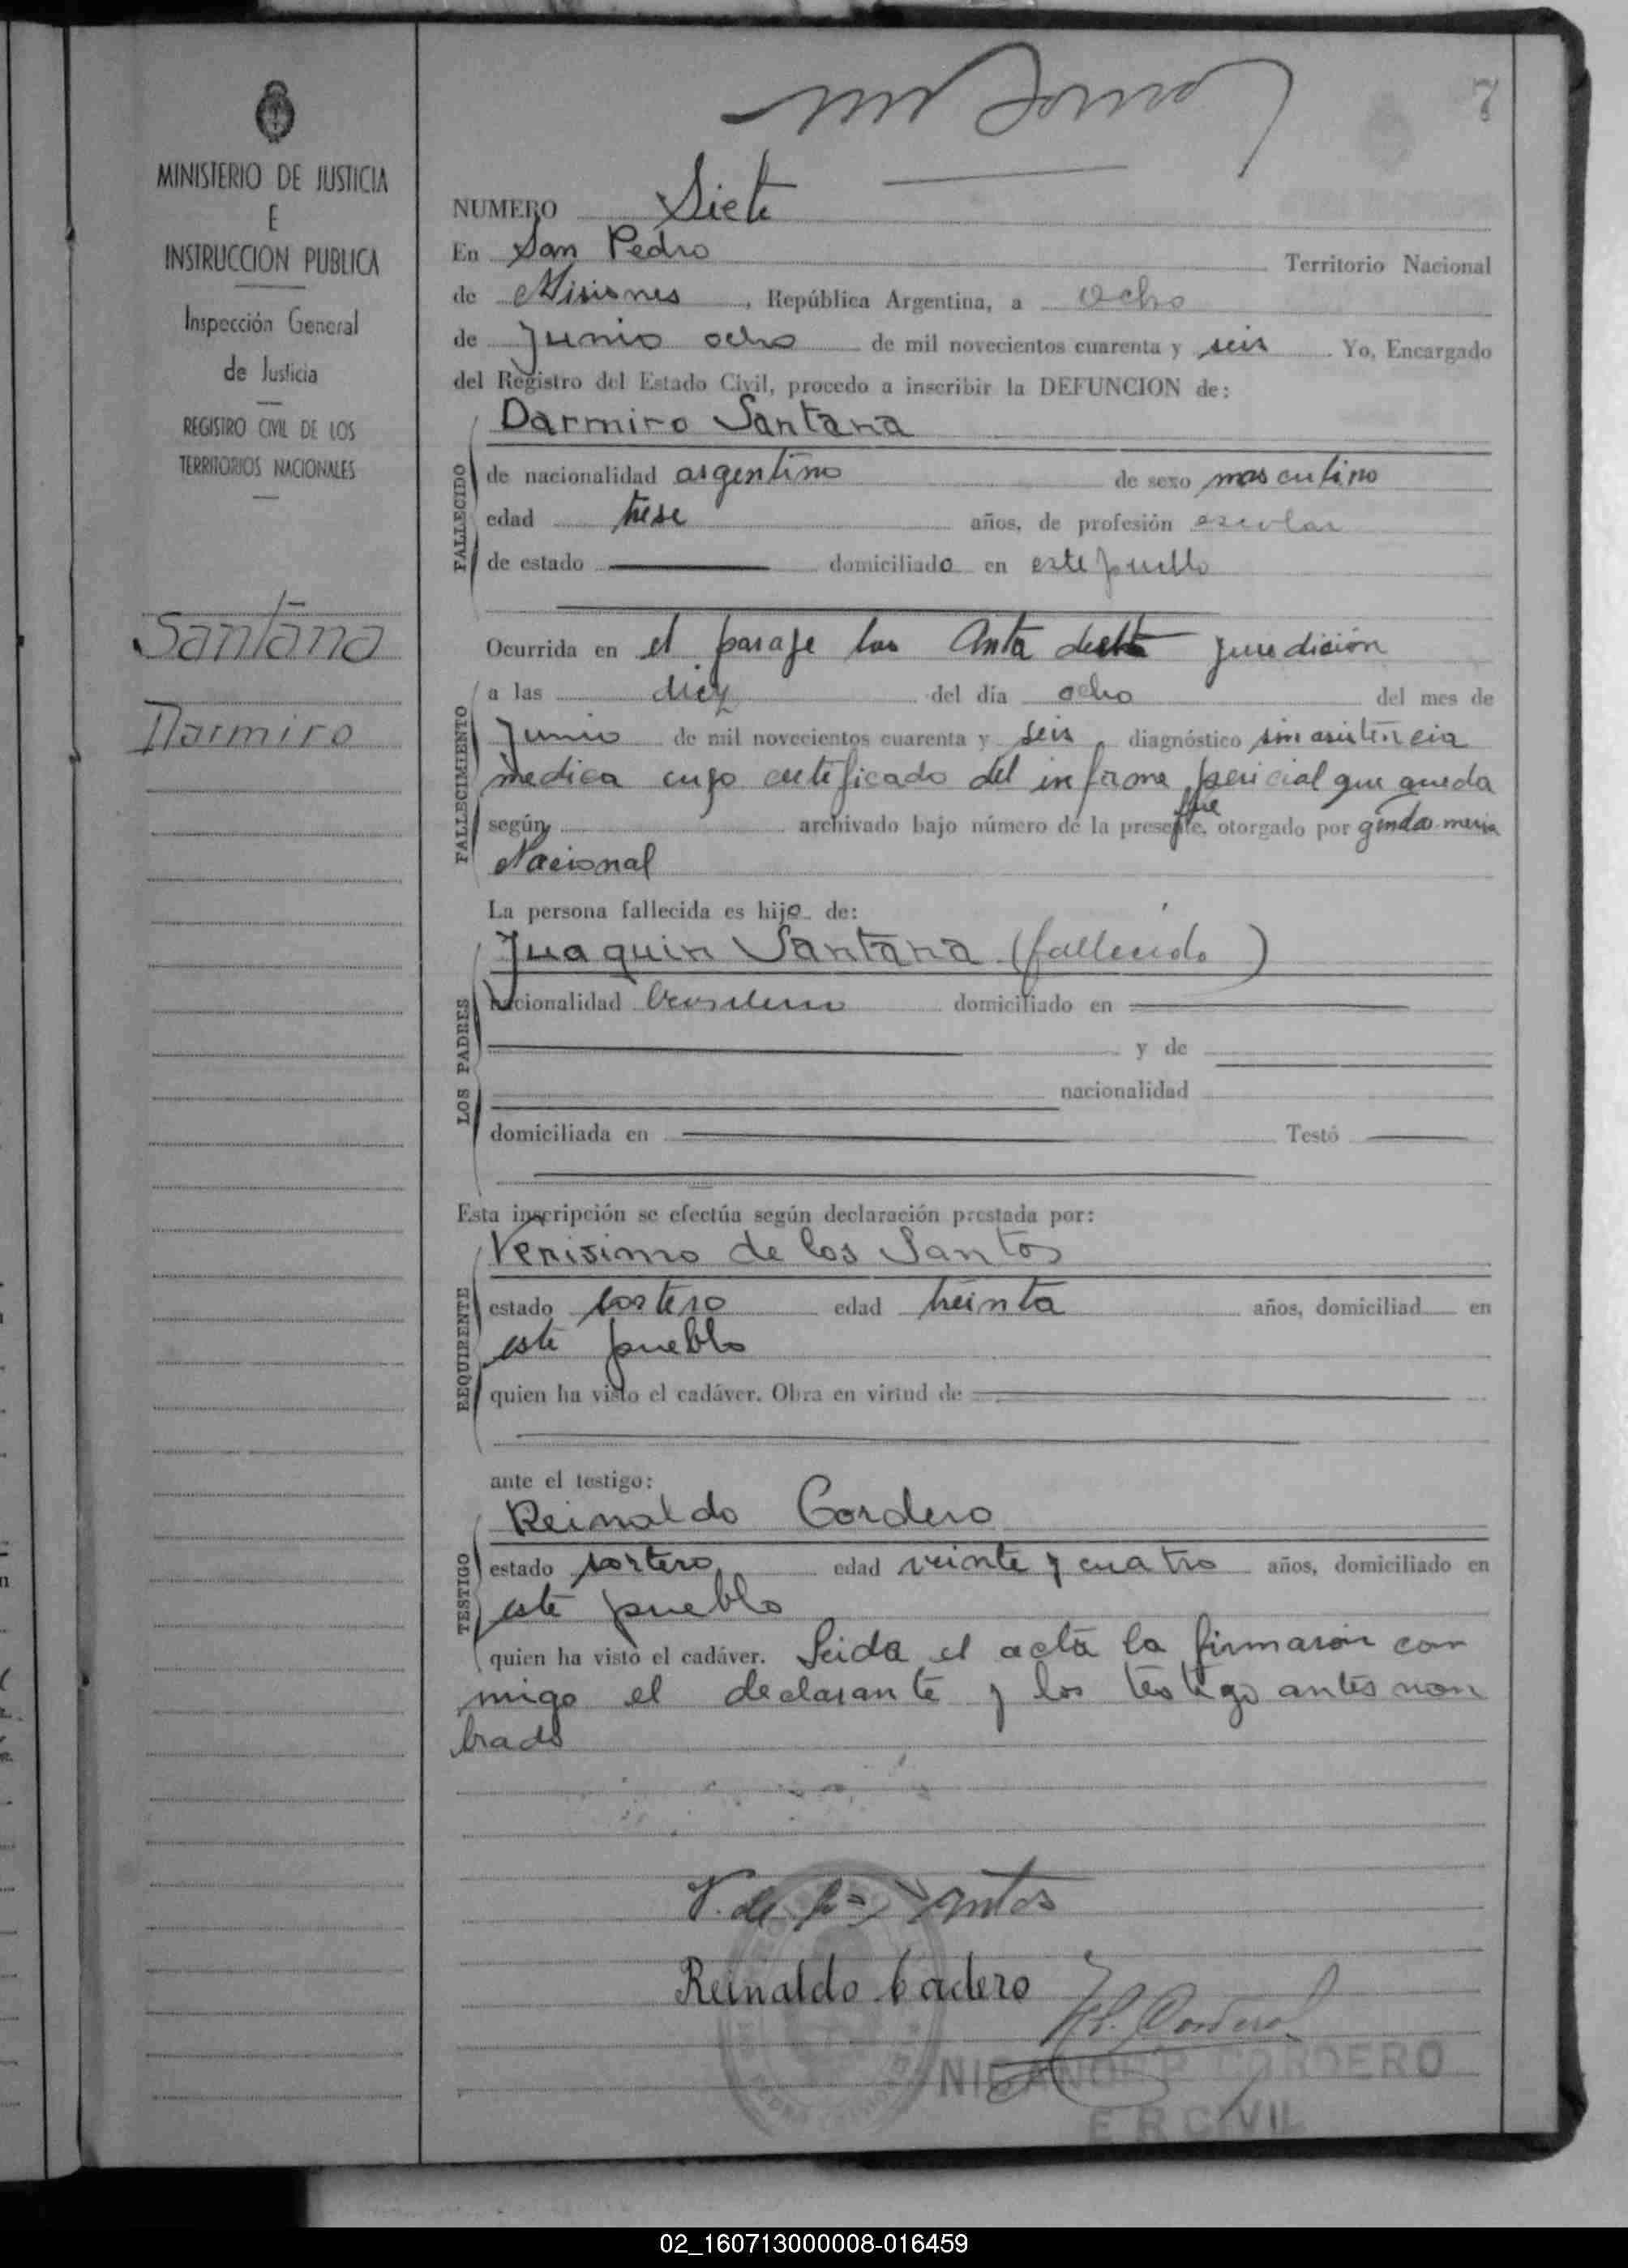 MINISTERIO DE JUSTICIA
E
INSTRUCCION PUBLICA
Inspección General
de Justicia
REGISTRO CIVIL DE LOS
TERRITORIOS NACIONALES
Santana
Darmiro
7
NUMERO Siete
En San Pedro Territorio Nacional
de Misiones, República Argentina, a ocho
de Junio ocho de mil novecientos cuarenta y seis Yo, Encargado
del Registro del Estado Civil, procedo a inscribir la DEFUNCION de:
Darmiro Santana
FALLECIDO
de nacionalidad argentino de sexo masculino
edad trese años, de profesión escolar
de estado domiciliado en este pueblo
Ocurrida en el paraje las Anta desta juredición
FALLECIMIENTO
a las diez del día ocho del mes de
Junio de mil novecientos cuarenta y seis, diagnóstico sin asistencia
medica cuyo certificado del informe pericial que queda
según archivado bajo número de la presente, fue otorgado por gendarmeria
Nacional
La persona fallecida es hijo de:
LOS PADRES
Juaquin Santana (fallecido)
nacionalidad brasilero domiciliado en
y de
nacionalidad
domiciliada en Testó
Esta inscripción se efectúa según declaración prestada por:
REQUIRENTE
Verisimo de los Santos
estado sortero edad treinta años, domiciliad en
este pueblo
quien ha visto el cadáver. Obra en virtud de
ante el testigo:
TESTIGO
Reinaldo Cordero
estado sortero edad veinte y cuatro años, domiciliado en
este pueblo
quien ha visto el cadáver. Leida el acta la firmaron con
migo el declarante y los testigo antes non
brado
V. de los Santos
Reinaldo Cadero
Cordero
NICANOR P CORDERO
E R CIVIL
02_160713000008-016459